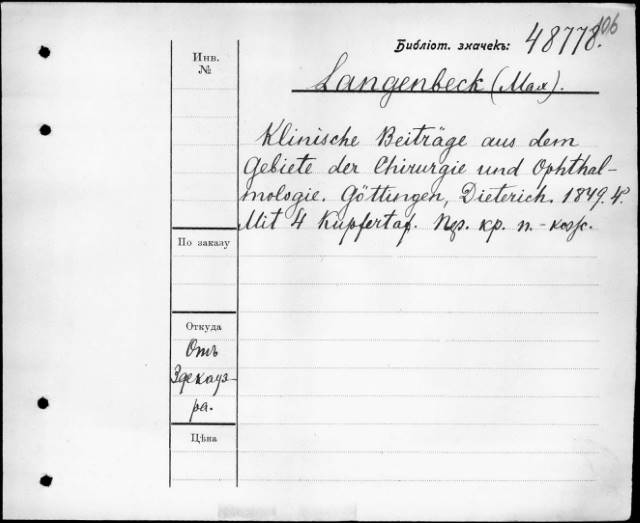 Библіот. значекъ: 48778.106
Langenbeck (Max).
Инв.
№
Klinische Beiträge aus dem
Gebiete der Chirurgie und Ophthal-
mologie. Göttingen, Dieterich. 1849. 4°.
Mit 4 Kupfertaf. кр. п.-кож.
По заказу
Откуда
Отъ
Здекауэ-
ра.
Цѣна